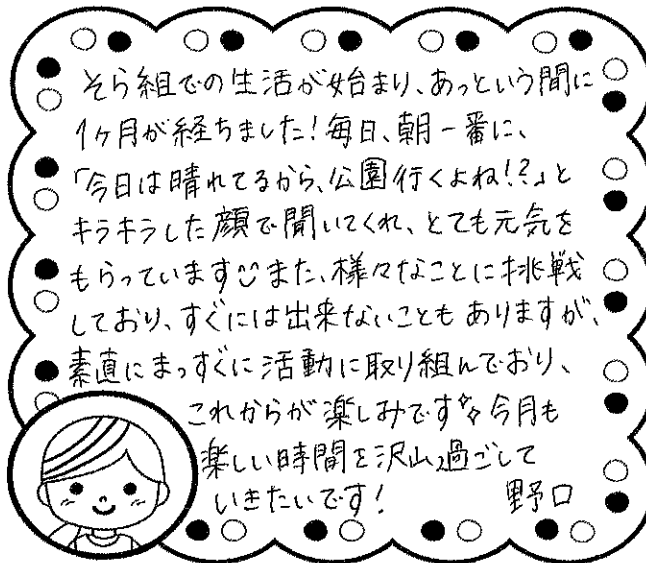 そら組での生活が始まり、あっという間に
1ヶ月が経ちました!毎日、朝一番に、
「今日は晴れてるから、公園行くよね!?」と
キラキラした顔で聞いてくれ、とても元気を
もらっています また、様々なことに挑戦
しており、すぐには出来ないこともありますが、
素直にまっすぐに活動に取り組んでおり、
これからが楽しみです 今月も
楽しい時間を沢山過ごして
いきたいです!
野口